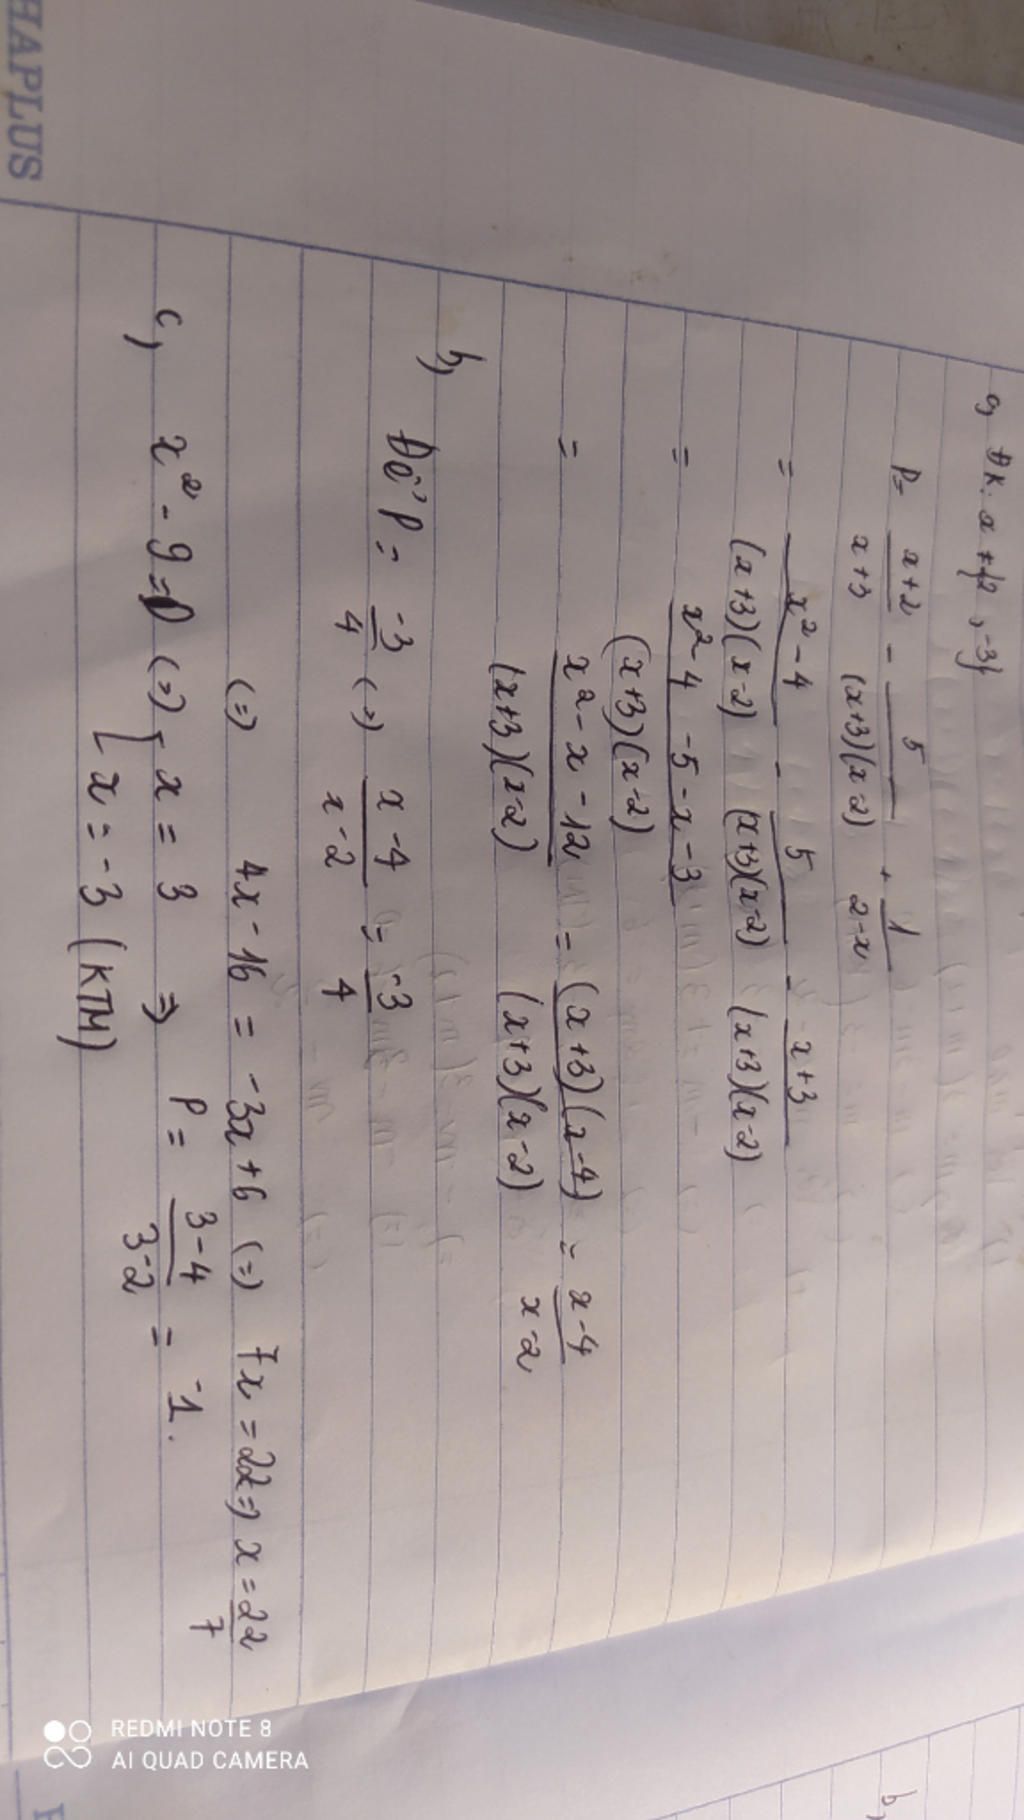 a, ĐK: x ≠ {2, -3}
P = \frac{x+2}{x+3} - \frac{5}{(x+3)(x-2)} + \frac{1}{2-x}
= \frac{x²-4}{(x+3)(x-2)} - \frac{5}{(x+3)(x-2)} - \frac{x+3}{(x+3)(x-2)}
= \frac{x²-4-5-x-3}{(x+3)(x-2)}
= \frac{x²-x-12}{(x+3)(x-2)} = \frac{(x+3)(x-4)}{(x+3)(x-2)} = \frac{x-4}{x-2}
b,
Để P = \frac{-3}{4} (=) \frac{x-4}{x-2} = \frac{-3}{4}
(=) 4x-16 = -3x+6 (=) 7x = 22 => x = \frac{22}{7}
c, x²-9=0 (=) [ x = 3 => P = \frac{3-4}{3-2} = -1.
x = -3 (KTM)
HAPLUS
REDMI NOTE 8
AI QUAD CAMERA
b,